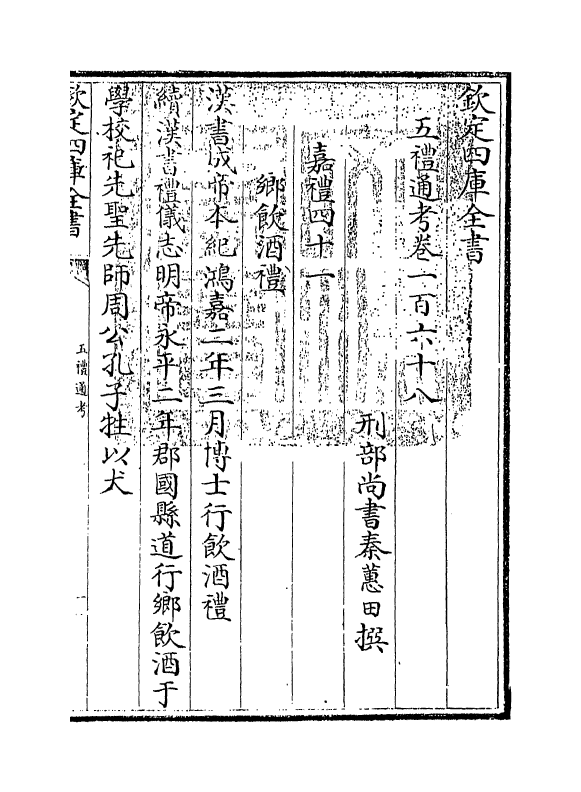 欽定四庫全書
五禮通考卷一百六十八
刑部尚書秦蕙田撰
嘉禮四十一
鄉飲酒禮
漢書成帝本紀鴻嘉二年三月博士行飲酒禮
續漢書禮儀志明帝永平二年郡國縣道行鄉飲酒于
學校祀先聖先師周公孔子牲以犬
欽定四庫全書
五禮通考
一